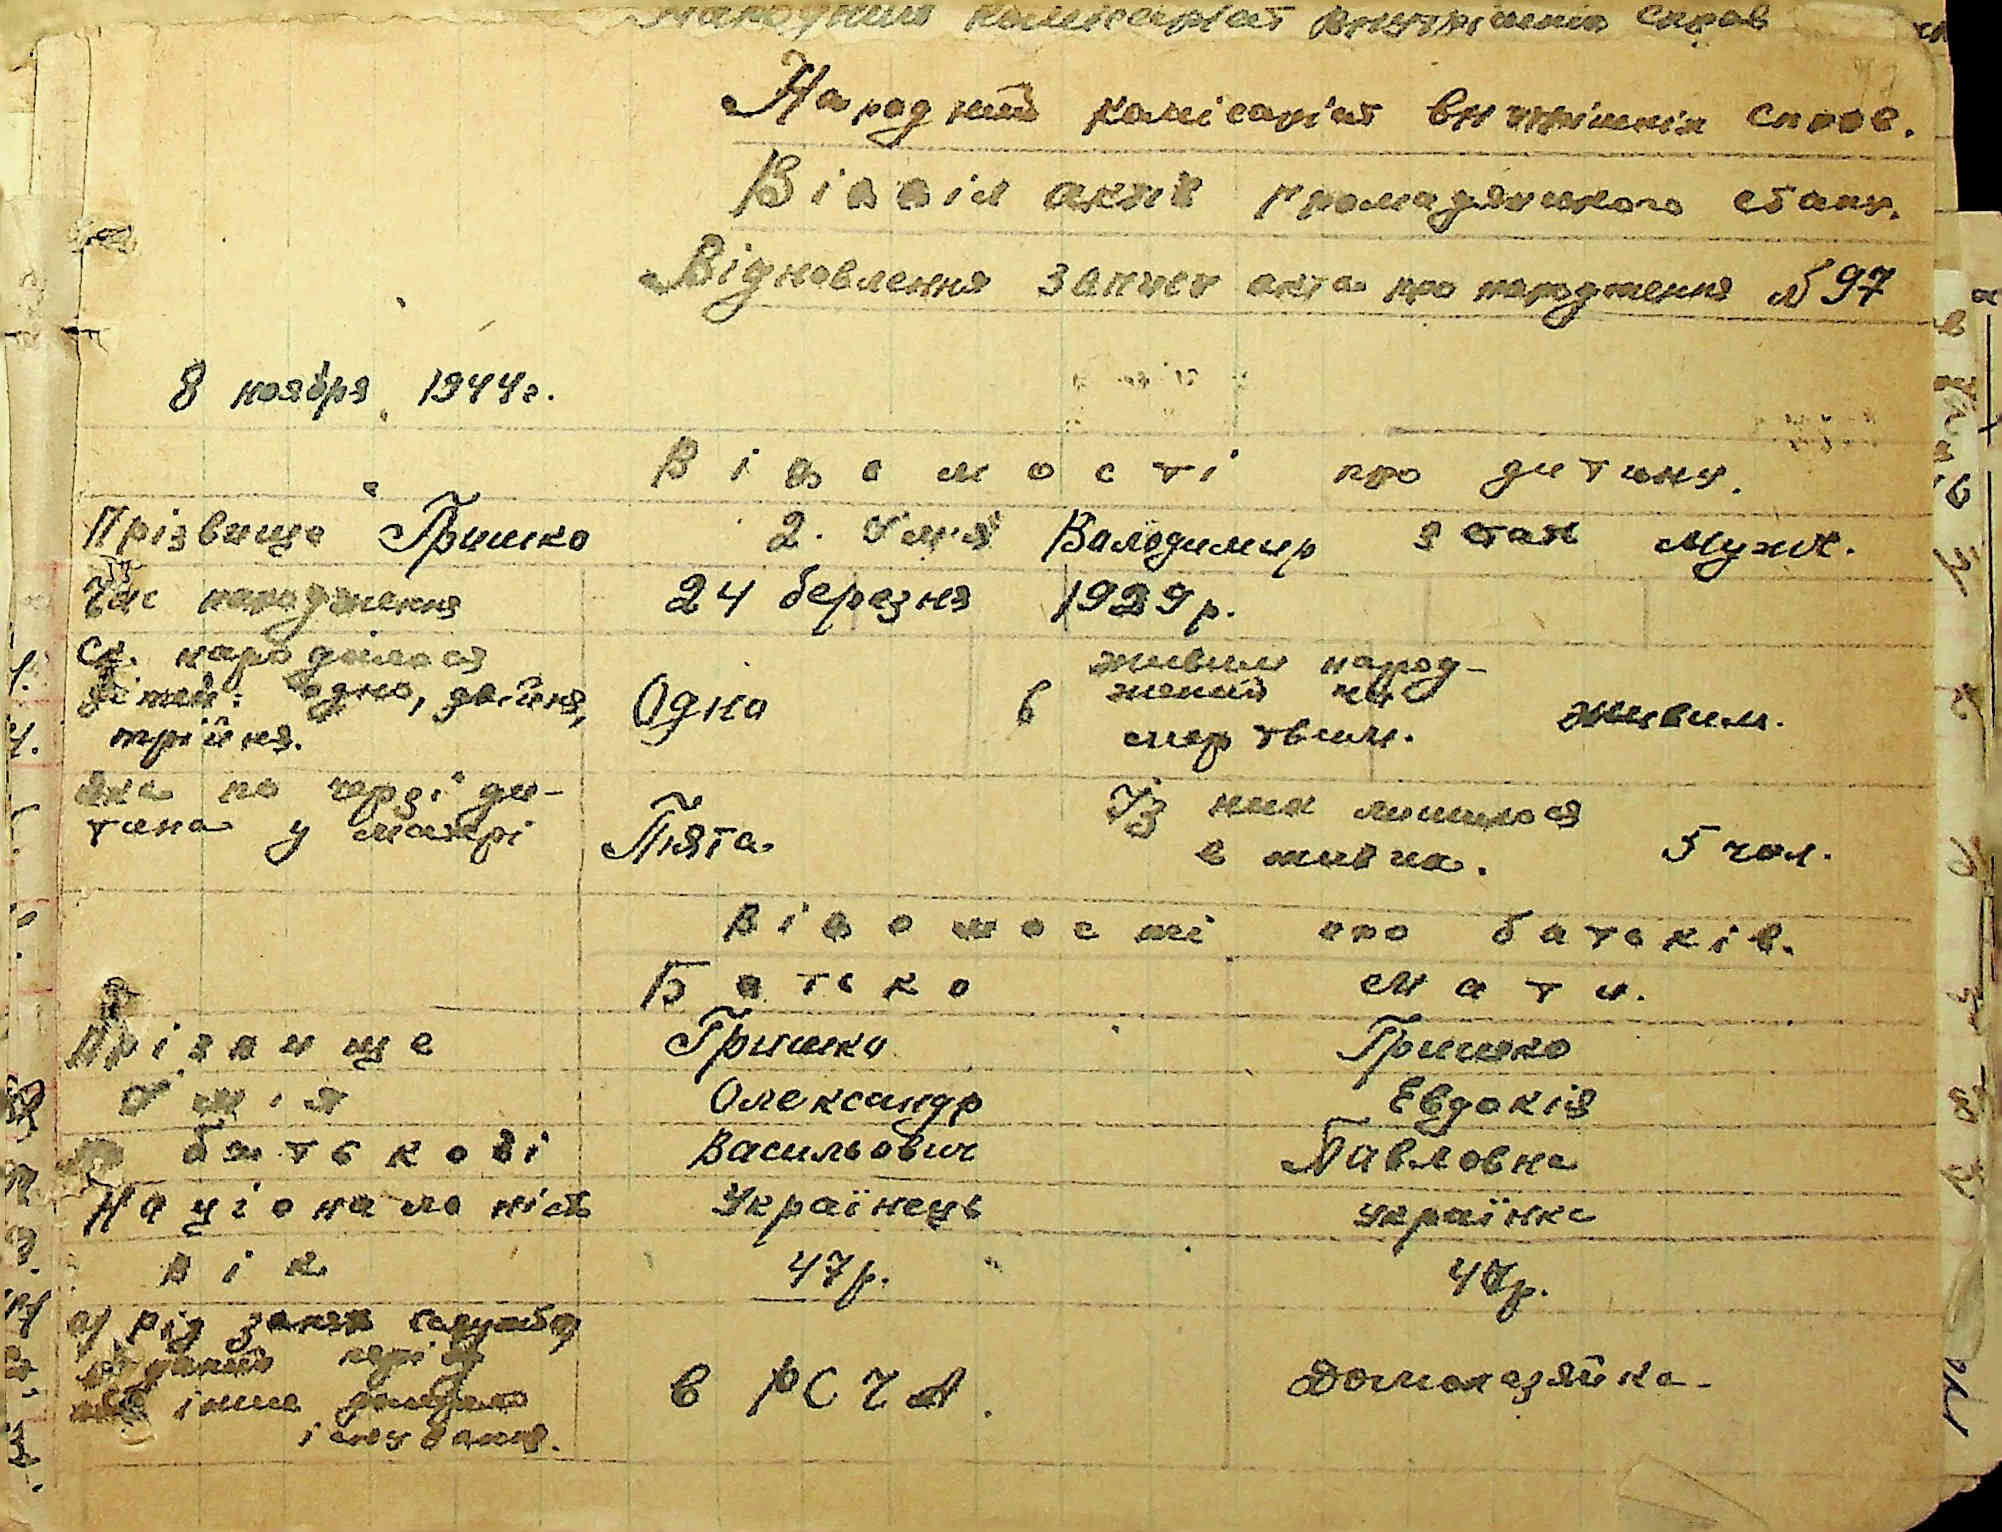 Народний комісаріат внутрішніх справ
Народний комісаріат внутрішніх справ.
Відділ актів громадянського стану.
Відновлення запису акта про народження № 97
8 ноября 1944 г.
Відомості про дитину.
Прізвище Гришко 2. Ім'я Володимир 3 стать Мужч.
Час народження 24 березня 1929 р.
Ск. народилося живим народ-
дітей: одно, двійня, Одно 6 жений чи
трійня. мертвим. живим.
яка по черзі ди- Із них лишилося
тина у матері Пята. в живих. 5 чол.
Відомості про батьків.
Батько Мати.
Прізвище Гришко Гришко
Ім'я Олександр Евдокія
по батькові Васильович Павловна
Національність Українець українка
Вік 47 р. р.
а) рід занять служба,
в РСЧА. Домохазяйка.
інше
існування.